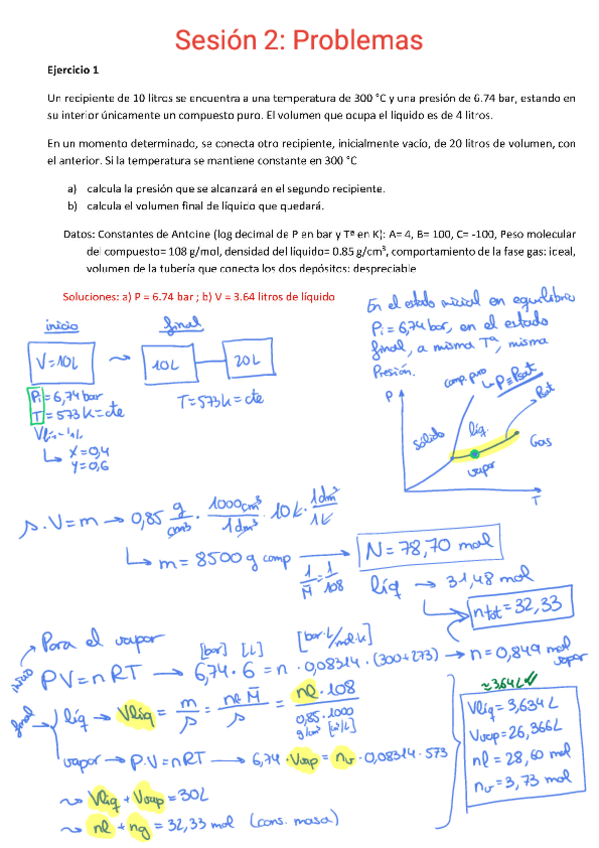 Sesión 2: Problemas
Ejercicio 1
Un recipiente de 10 litros se encuentra a una temperatura de 300 °C y una presión de 6.74 bar, estando en
su interior únicamente un compuesto puro. El volumen que ocupa el líquido es de 4 litros.
En un momento determinado, se conecta otro recipiente, inicialmente vacío, de 20 litros de volumen, con
el anterior. Si la temperatura se mantiene constante en 300 °C
a) calcula la presión que se alcanzará en el segundo recipiente.
b) calcula el volumen final de líquido que quedará.
Datos: Constantes de Antoine (log decimal de P en bar y Tª en K): A= 4, B= 100, C= -100, Peso molecular
del compuesto= 108 g/mol, densidad del líquido= 0.85 g/cm³, comportamiento de la fase gas: ideal,
volumen de la tubería que conecta los dos depósitos: despreciable
Soluciones: a) P = 6.74 bar ; b) V = 3.64 litros de líquido
En el estado inicial en equilibrio
Pi = 6,74 bar, en el estado
final, a misma Tª, misma
Presión.
inicio
final
V=10L
10L
20L
Pi=6,74 bar
T=573K=cte
T=573K=cte
Vliq=4L
X=0,4
Y=0,6
comp. puro
P=Psat
P
Psat
sólido
líq.
Gas
vapor
T
ρ·V=m → 0,85 g/cm³ · 1000cm³/1dm³ · 10L · 1dm³/1L
m = 8500 g comp
1/M = 1/108
N = 78,70 mol
líq → 31,48 mol
ntot = 32,33
Para el vapor
[bar] [L] [bar·L/mol·K]
inicio
PV=nRT → 6,74·6 = n · 0,08314 · (300+273) → n = 0,849 mol vapor
final
líq → Vliq = m/ρ = nl·M/ρ = nl·108 / 0,85·1000
g/cm³ [cm³/L]
vapor → P·V=nRT → 6,74·Vvap = nv · 0,08314·573
Vliq + Vvap = 30L
nl + ng = 32,33 mol (cons. masa)
≈3,64L
Vliq = 3,634 L
Vvap = 26,366L
nl = 28,60 mol
nv = 3,73 mol